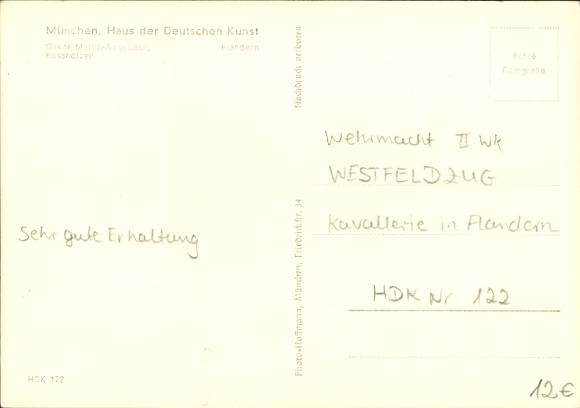 München, Haus der Deutschen Kunst
Oskar Martin-Amorbach, Flandern
Rossholzen
Nachdruck verboten
Echte
Fotografie
Wehrmacht II WK
WESTFELDZUG
Kavallerie in Flandern
HDK Nr 122
Sehr gute Erhaltung
Photo-Hoffmann, München, Friedrichstr. 34
HDK 122
12€